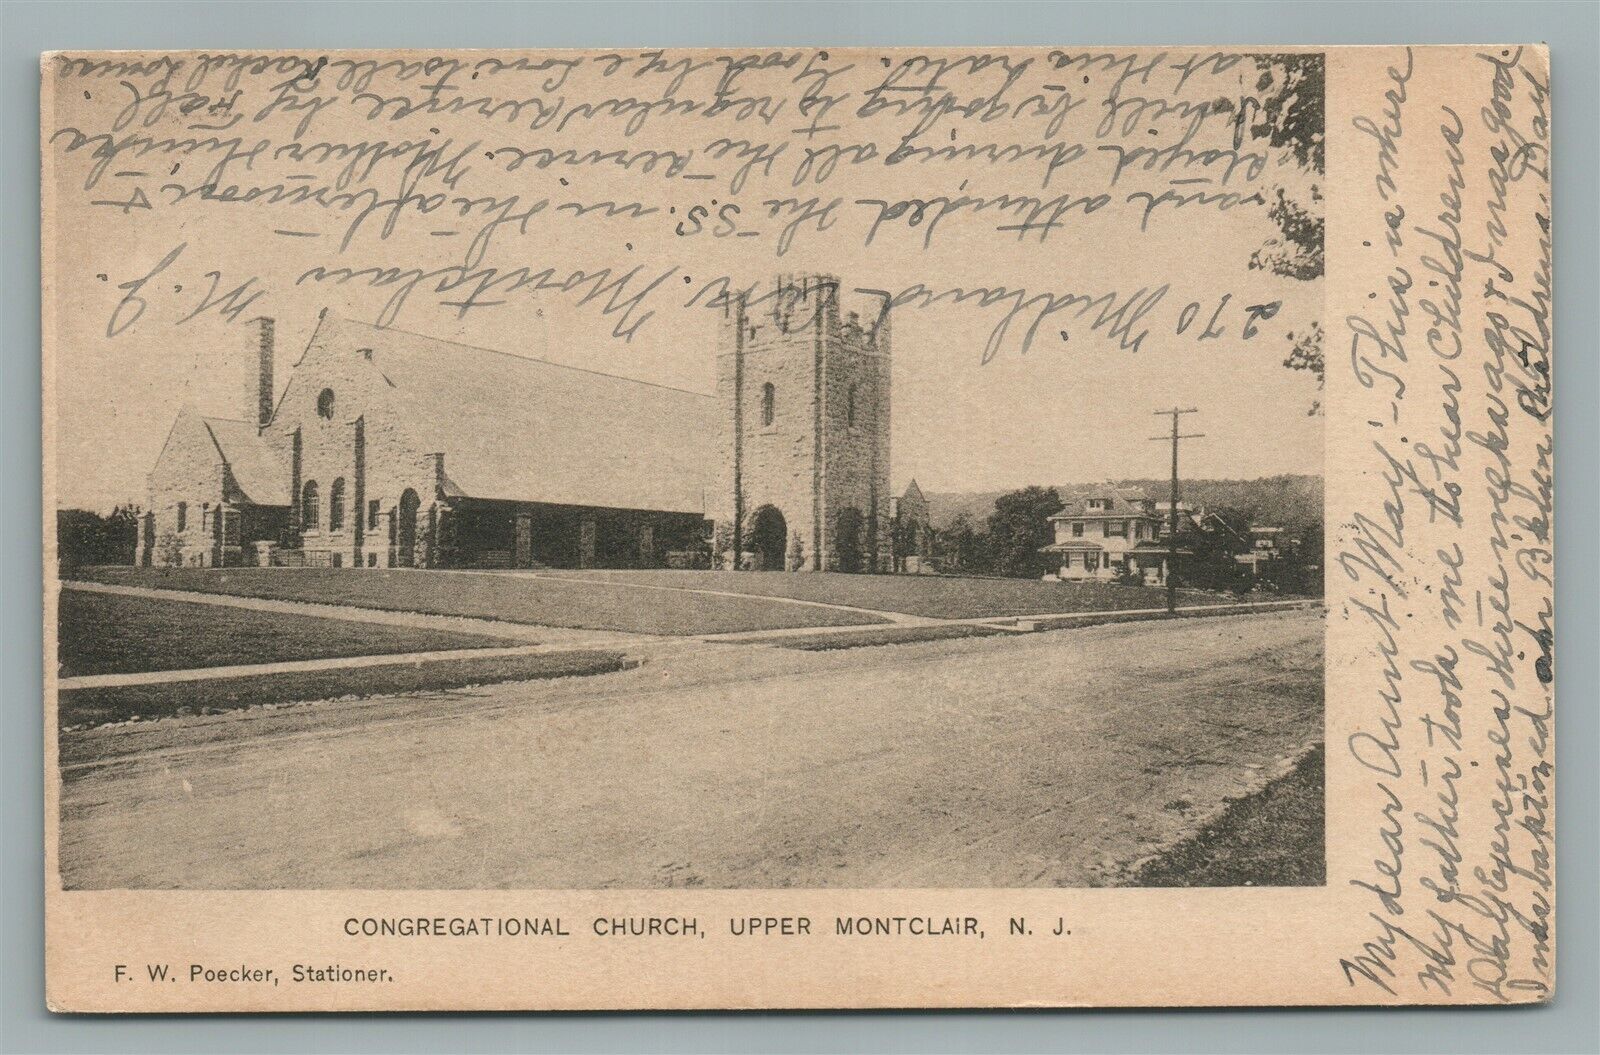 My dear Aunt May: - This is where
my father took me to hear Childrens
Day exercises three weeks ago & I was good
I was baptized on Bklyn Childrens Day
and attended the S.S. in the afternoon &
stayed during all the service. Mother thinks
I will be going to regular service by Fall
at this rate. Good bye & love to all Rachel Louise
270 Midland Av. Montclair N.J.
CONGREGATIONAL CHURCH, UPPER MONTCLAIR, N. J.
F. W. Poecker, Stationer.